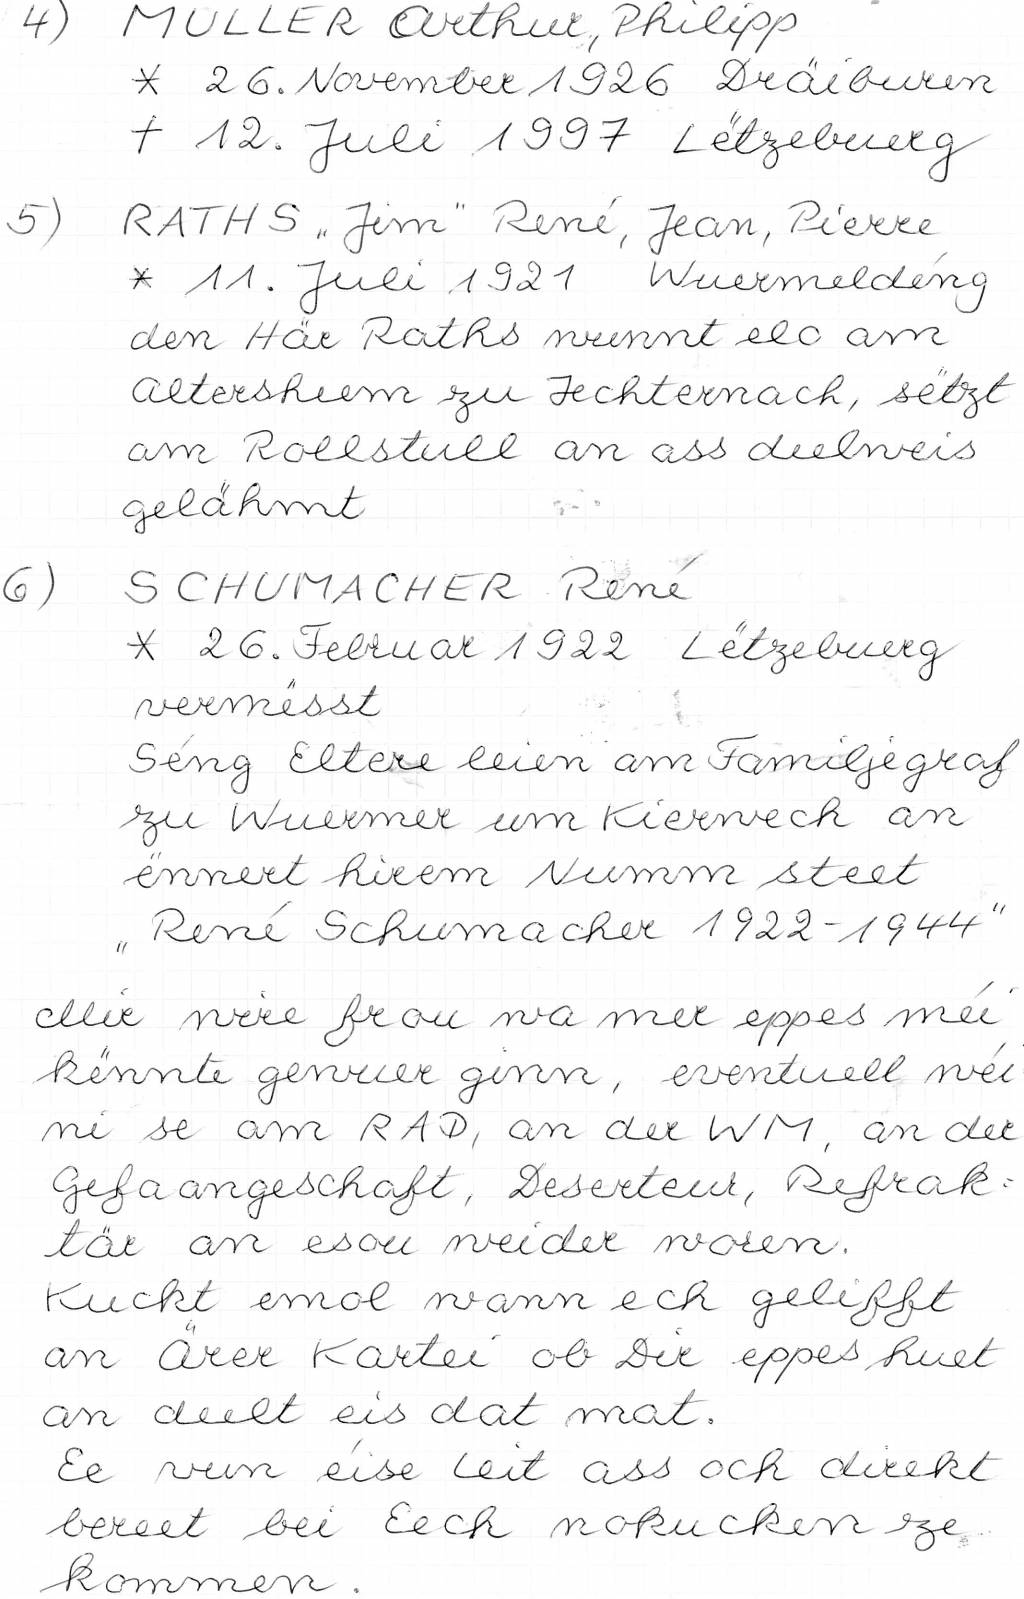 4) MULLER Arthur, Philipp
* 26. November 1926 Dräiburen
† 12. Juli 1997 Lëtzebuerg
5) RATHS „Jim" René, Jean, Pierre
* 11. Juli 1921 Wuermeldéng
den Här Raths wunnt elo am
Altersheem zu Iechternach, sëtzt
am Rollstull an ass deelweis
gelähmt
6) SCHUMACHER René
* 26. Februar 1922 Lëtzebuerg
vermësst
Séng Eltere leien am Familjegraf
zu Wuermer um Kierwech an
ënnert hirem Numm steet
„René Schumacher 1922-1944"
Mir wire frou wa mer eppes méi
kënnte gewuer ginn, eventuell wéi
ni se am RAD, an der WM, an der
Gefaangeschaft, Deserteur, Refrak-
tär an esou weider woren.
Kuckt emol wann ech gelifft
an Ärer Kartei ob Dir eppes huet
an deelt eis dat mat.
Ee vun éise Leit ass och direkt
bereet bei Eech nokucken ze
kommen.